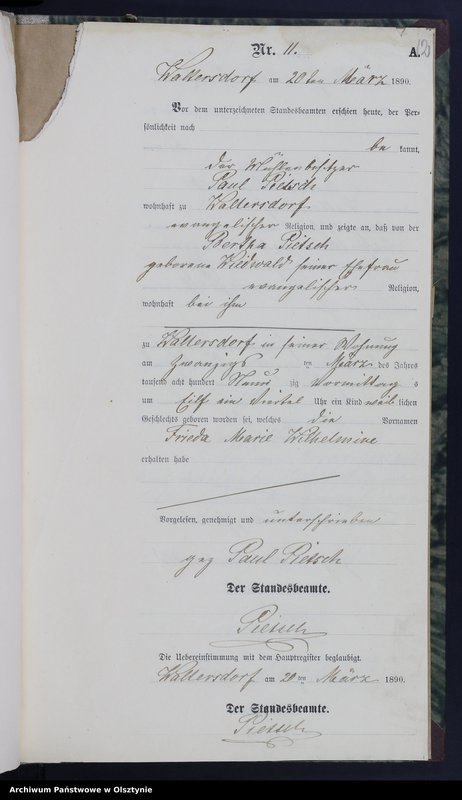 Nr. 11.
A.
120
Wallersdorf am 20ten März 1890.
Vor dem unterzeichneten Standesbeamten erschien heute, der Per-
sönlichkeit nach
be kannt,
der Mühlenbesitzer
Paul Pietsch
wohnhaft zu Wallersdorf
evangelischer Religion, und zeigte an, daß von der
Bertha Pietsch
geborene Wiedwald seiner Ehefrau
evangelischer Religion,
wohnhaft bei ihm
zu Wallersdorf in seiner Wohnung
am zwanzigs ten März des Jahres
tausend acht hundert Neun zig Vormittag s
um Eilf ein Viertel Uhr ein Kind weib lichen
Geschlechts geboren worden sei, welches die Vornamen
Frieda Marie Wilhelmine
erhalten habe
Vorgelesen, genehmigt und unterschrieben
gez Paul Pietsch
Der Standesbeamte.
Pietsch
Die Uebereinstimmung mit dem Hauptregister beglaubigt.
Wallersdorf am 20ten März 1890.
Der Standesbeamte.
Pietsch
Archiwum Państwowe w Olsztynie